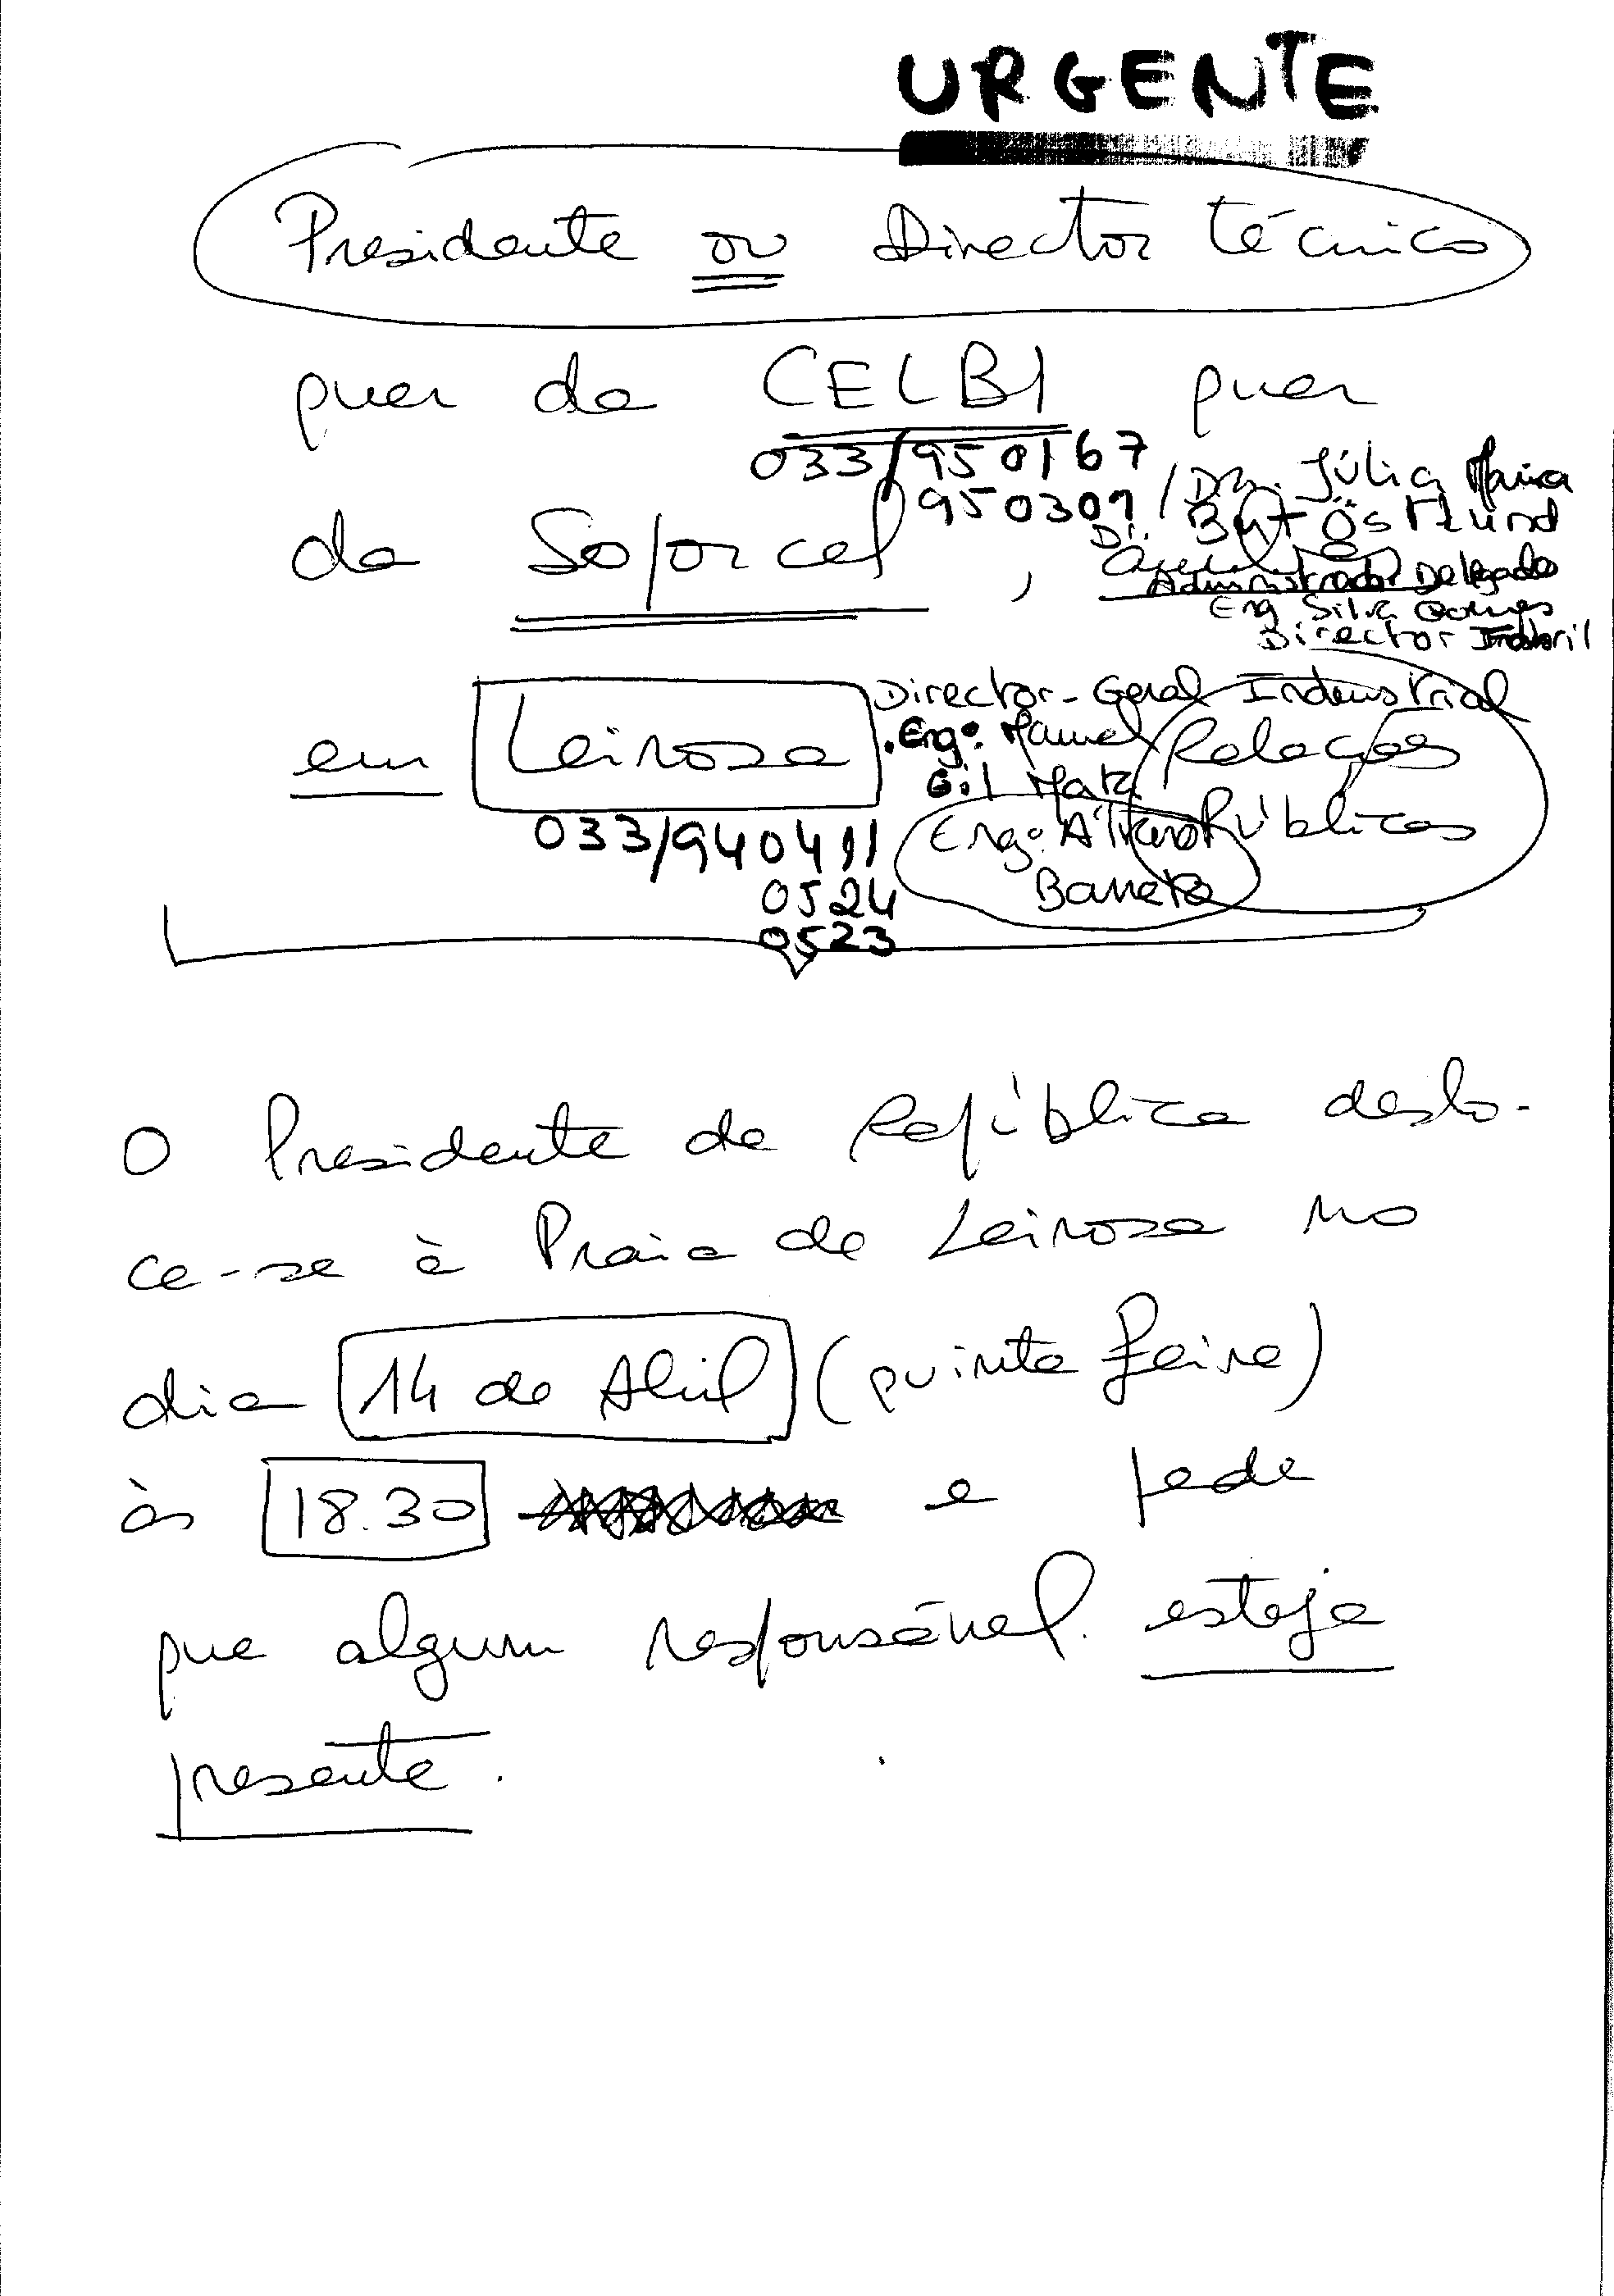 URGENTE
Presidente ou Director técnico
quer da CELBI quer
033/950167
950309 / Dra. Júlia Maria
da Soporcel, Dr. Östlund
Administrador Delegado
Eng Silva Gomes
Director Fabril
Director-Geral Indeustrial
em Leirosa . Engº. Manuel Relações
Gil Mata
033/940411 Engº. Álvaro Públicas
0524 Barreto
0523
O Presidente da República deslo-
ca-se à Praia de Leirosa no
dia 14 de Abril (quinta feira)
às 18.30 e pede
que algum responsável esteja
presente.